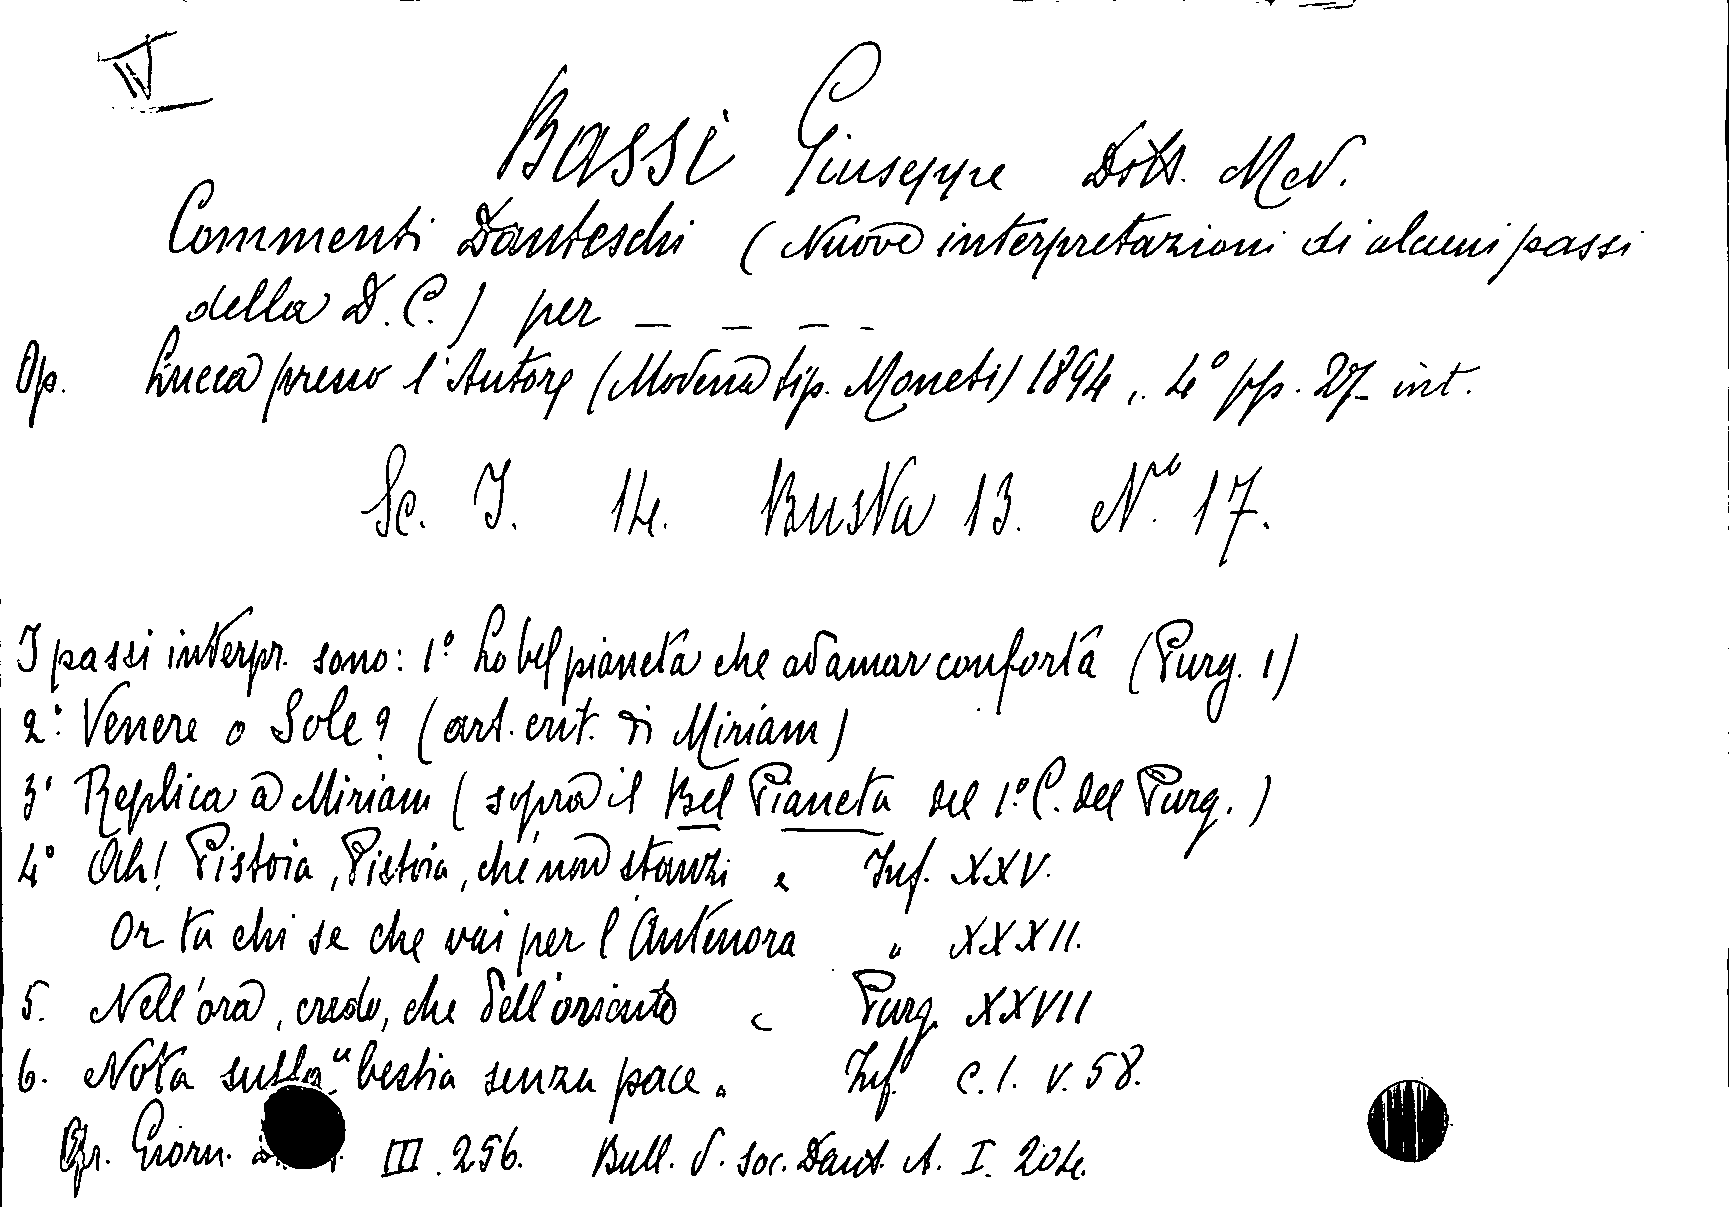 IV
Bassi Giuseppe Dott. M N.
Commenti Danteschi (Nuove interpretazioni di alcuni passi
della D. C.) per _ _ _ _
Op. Lucca presso l'Autore (Modena tip. Moneti) 1894, 4° pp. 27 int.
Sc. I. 14. Busta 13. N.ro 17.
I passi interpr. sono: 1° Lo bel pianeta che ad amar conforta (Purg. 1)
2° Venere o Sole? (art. crit. di Miriam)
3° Replica a Miriam (sopra il Bel Pianeta del 1° C. del Purg.)
4° Ah! Pistoia, Pistoia, chè non stanzi " Inf. XXV.
Or tu chi se che vai per l'Antenora " XXXII.
5. Nell'ora, credo, che dell'oriente " Purg. XXVII
6. Nota sulla "bestia senza pace" Inf. C. I. v. 58.
Cfr. Giorn. III. 256. Bull. d. Soc. Dant. A. I. 204.